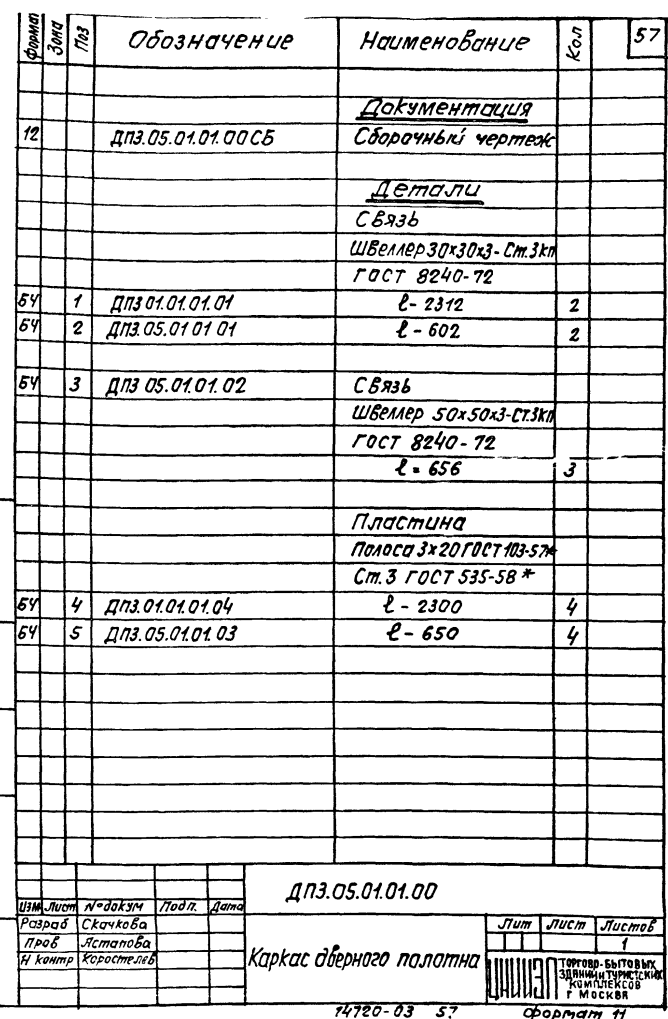 формат Зона Поз Обозначение Наименование Кол 57
Документация
12 ДПЗ.05.01.01.00СБ Сборочный чертеж
Детали
Связь
Швеллер 30х30х3-Ст.3кп
ГОСТ 8240-72
БЧ 1 ДПЗ 01.01.01.01 ℓ- 2312 2
БЧ 2 ДПЗ.05.01 01 01 ℓ - 602 2
БЧ 3 ДПЗ 05.01.01.02 Связь
Швеллер 50х50х3-Ст.3кп
ГОСТ 8240-72
ℓ = 656 3
Пластина
Полоса 3х20 ГОСТ 103-57*
Ст.3 ГОСТ 535-58 *
БЧ 4 ДПЗ.01.01.01.04 ℓ - 2300 4
БЧ 5 ДПЗ.05.01.01 03 ℓ - 650 4
ДПЗ.05.01.01.00
Изм Лист №докум Подп. Дата
Разраб Скачкова
Пров Астапова
Н контр Коростелев
Каркас дверного полотна
Лит Лист Листов
1
ЦНИИЭП
торгово-бытовых
зданий и туристских
комплексов
г Москва
14720-03 57 формат 11